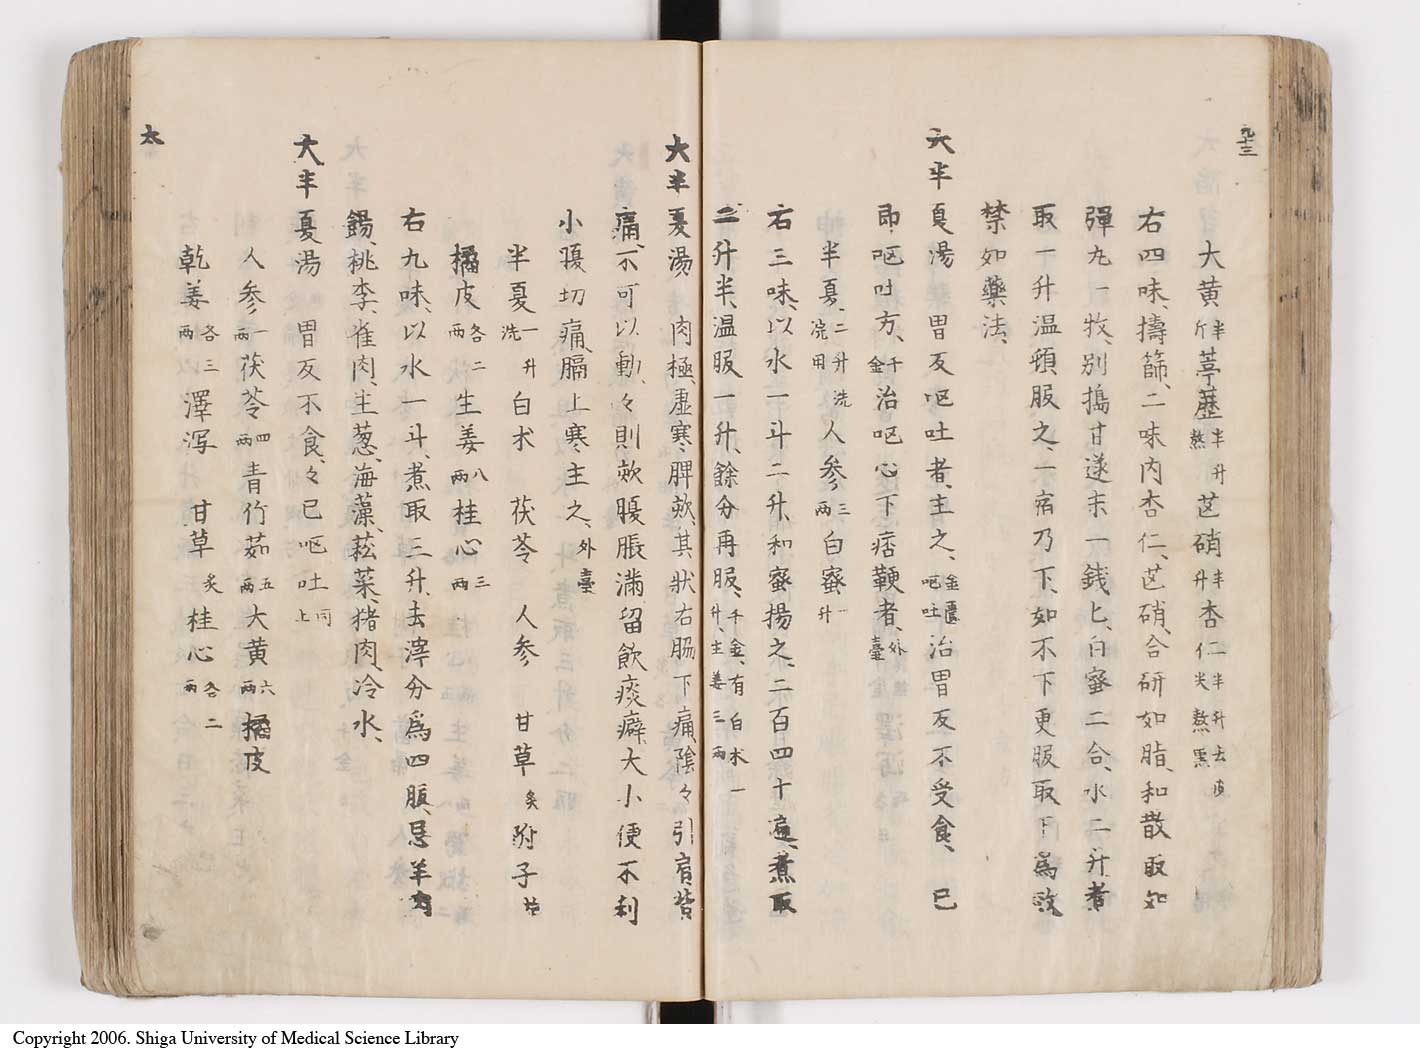 九十三
大黄半斤葶藶半升熬芒硝半升杏仁二半升去皮仁尖熬黒
右四味、擣篩、二味内杏仁、芒硝、合研如脂、和散取如
彈丸一牧、別搗甘遂末一銭匕、白蜜二合、水二升煮
取一升温頓服之、一宿乃下、如不下更服取下為效
禁如藥法、
大半夏湯 胃反呕吐者、主之、金匱呕吐治胃反不受食、已
即呕吐方、千金治呕心下痞鞕者、外臺
半夏、二升洗浣用人参三両白蜜一升
右三味、以水一斗二升、和蜜揚之、二百四十遍、煮取
二升半、温服一升、餘分再服、千金、有白朮一升、生姜三両
大半夏湯 肉極、虚寒、脾欬、其状右脇下痛、陰々引肩背
痛、不可以動、々則欬腹脹満留飲痰癖、大小便不利
小腹切痛、膈上寒、主之、外臺
半夏一升洗白朮 茯苓 人参 甘草炙附子炮
橘皮各二両生姜八両桂心三両
右九味、以水一斗、煮取三升、去滓分為四服、忌羊肉
餳、桃李、雀肉、生葱、海藻、菘菜、猪肉、冷水、
大半夏湯 胃反不食、々已呕吐同上
人参一両茯苓四両青竹茹五両大黄六両橘皮
乾姜各三両澤泻 甘草炙桂心各二両
大